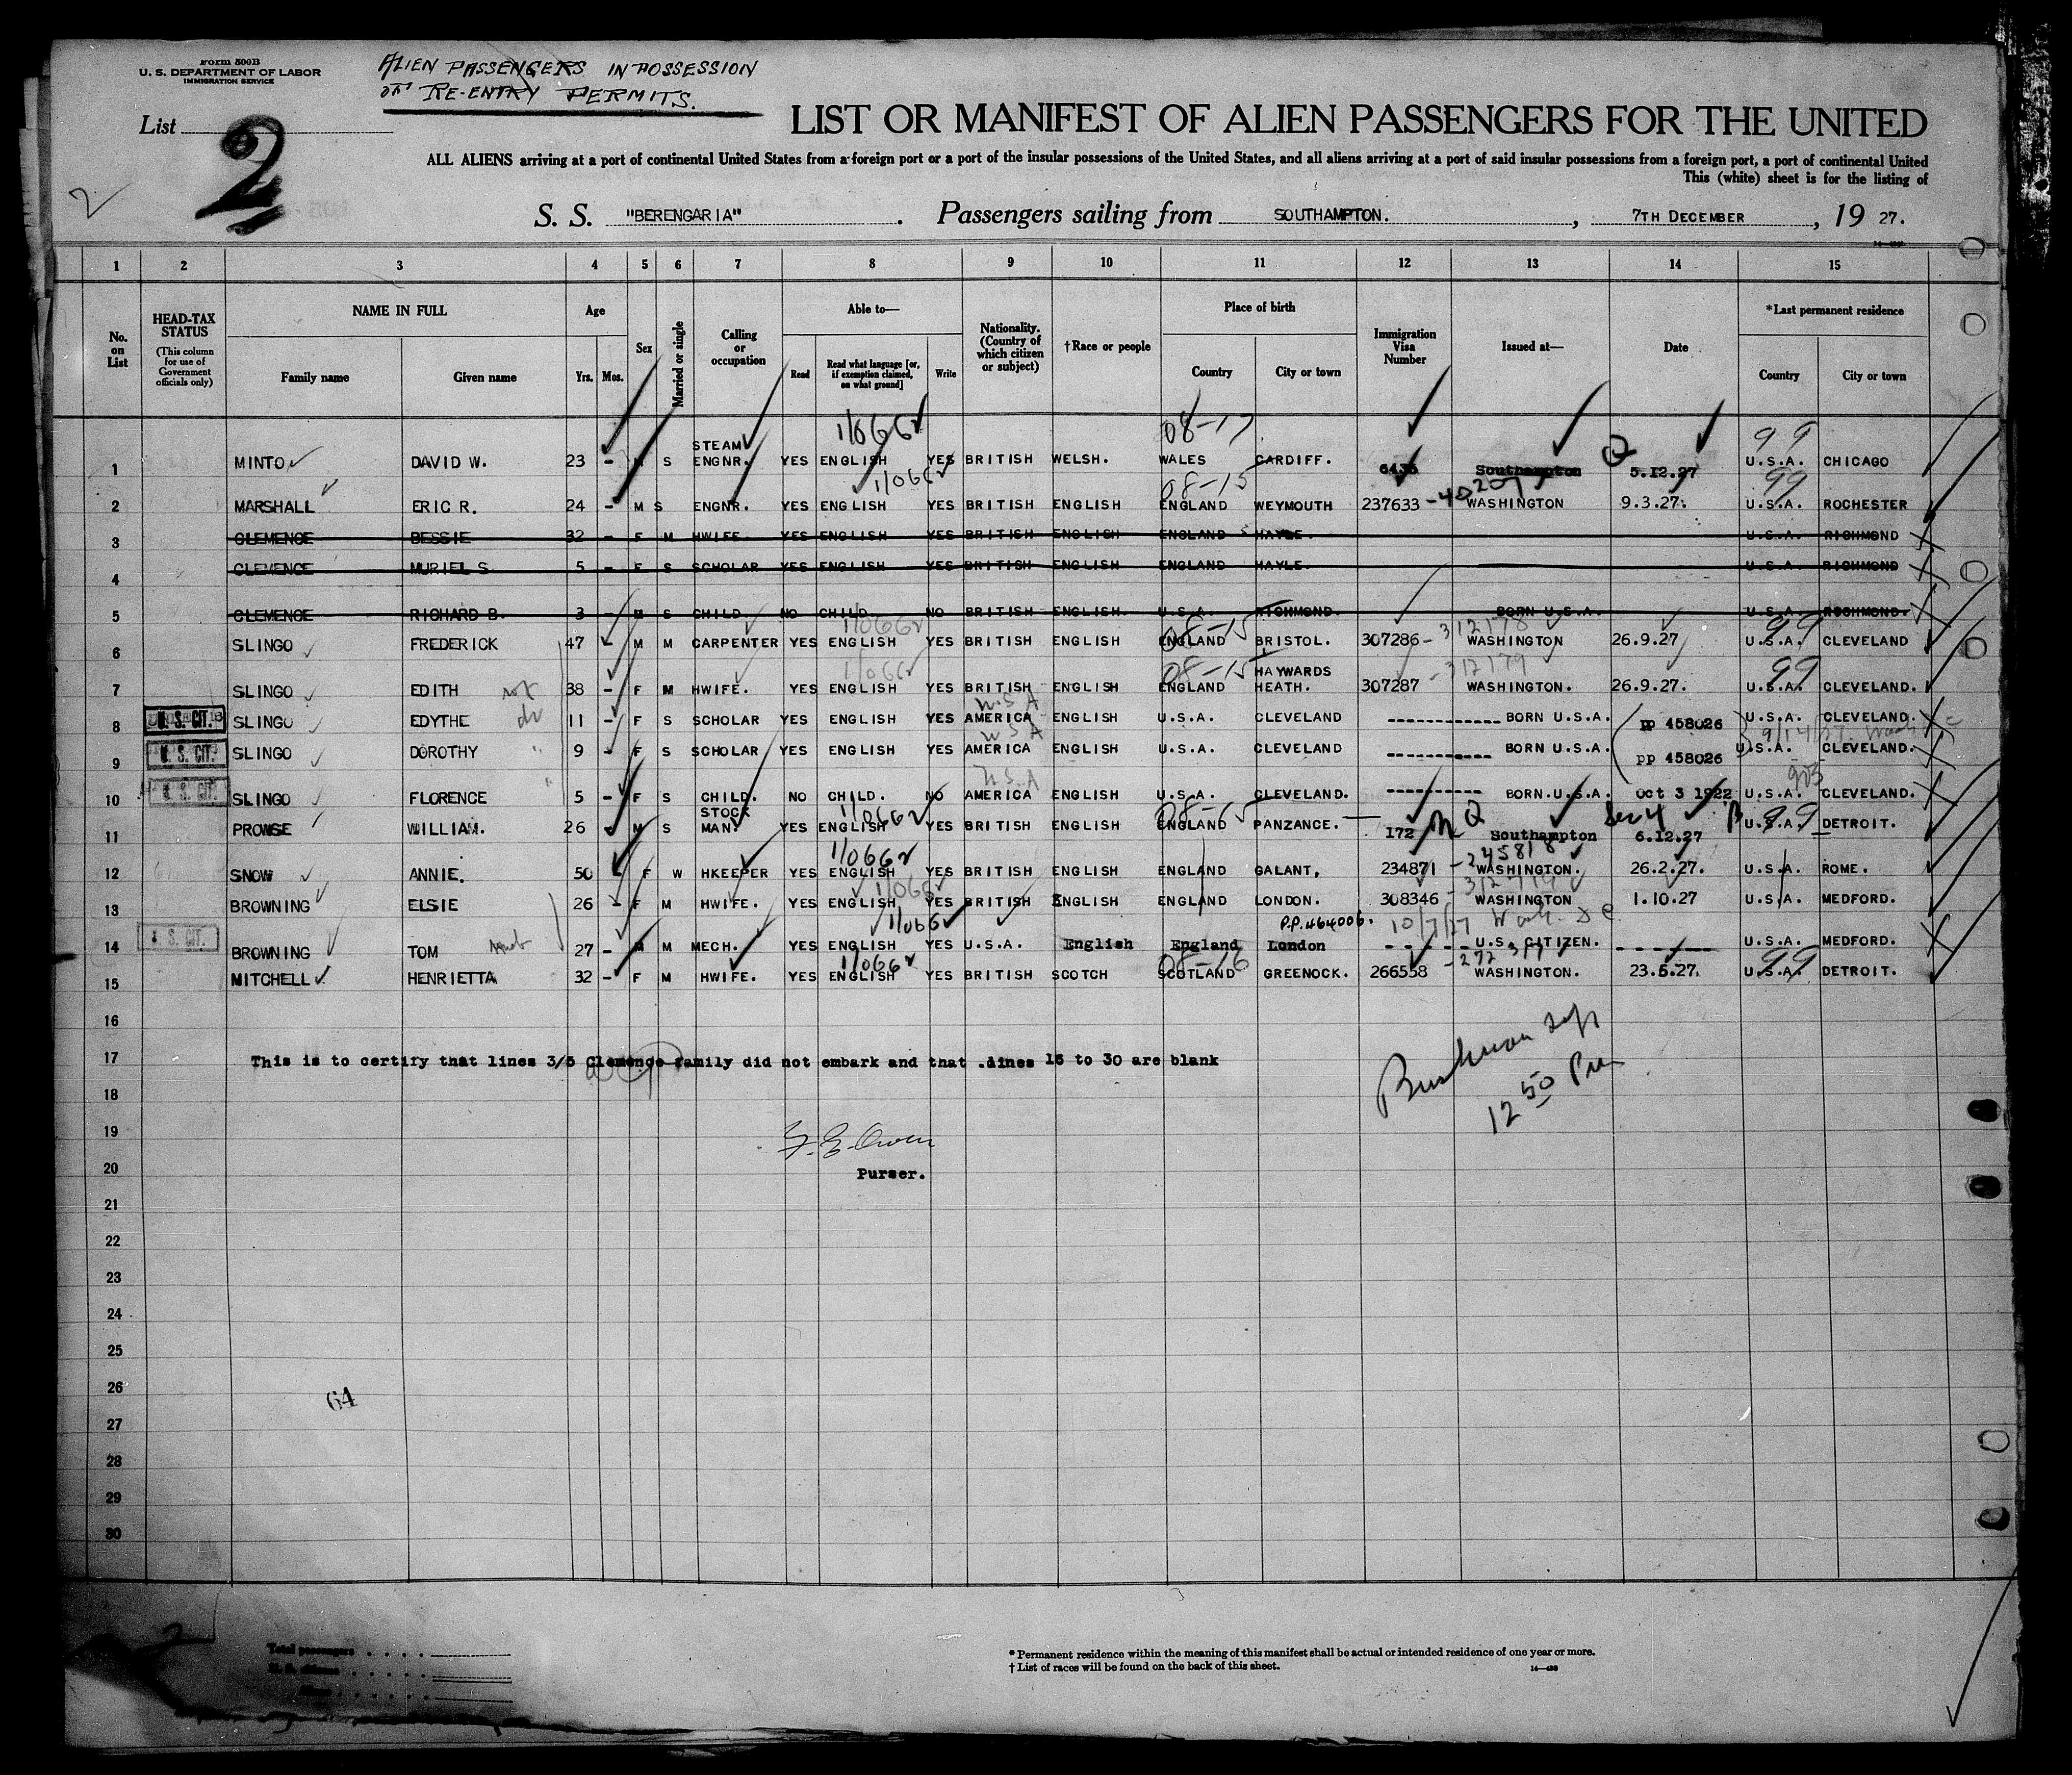 Form 500B
U. S. DEPARTMENT OF LABOR
IMMIGRATION SERVICE
ALIEN PASSENGERS IN POSSESSION
OF RE-ENTRY PERMITS.
List
2
2
LIST OR MANIFEST OF ALIEN PASSENGERS FOR THE UNITED
ALL ALIENS arriving at a port of continental United States from a foreign port or a port of the insular possessions of the United States, and all aliens arriving at a port of said insular possessions from a foreign port, a port of continental United
This (white) sheet is for the listing of
S. S. "BERENGARIA" . Passengers sailing from SOUTHAMPTON. , 7TH DECEMBER , 19 27.
1 2 3 4 5 6 7 8 9 10 11 12 13 14 15
No. on List
HEAD-TAX STATUS (This column for use of Government officials only)
NAME IN FULL Family name Given name
Age Yrs. Mos.
Sex
Married or single
Calling or occupation
Able to— Read Read what language [or, if exemption claimed, on what ground] Write
Nationality. (Country of which citizen or subject)
†Race or people
Place of birth Country City or town
Immigration Visa Number
Issued at—
Date
*Last permanent residence Country City or town
1/0662 08-17 99
1 MINTO DAVID W. 23 - M S STEAM ENGNR. YES ENGLISH YES BRITISH WELSH. WALES CARDIFF. 6436 Southampton 5.12.27 U.S.A. CHICAGO
1/0662 08-15 99
2 MARSHALL ERIC R. 24 - M S ENGNR. YES ENGLISH YES BRITISH ENGLISH ENGLAND WEYMOUTH 237633 WASHINGTON 9.3.27. U.S.A. ROCHESTER
3 CLEMENCE BESSIE 32 - F M HWIFE. YES ENGLISH YES BRITISH ENGLISH ENGLAND HAYLE. U.S.A. RICHMOND
4 CLEMENCE MURIEL S. 5 - F S SCHOLAR YES ENGLISH YES BRITISH ENGLISH ENGLAND HAYLE. U.S.A. RICHMOND
5 CLEMENCE RICHARD B. 3 - M S CHILD. NO CHILD NO BRITISH ENGLISH. U.S.A. RICHMOND. BORN U.S.A. U.S.A. RICHMOND.
1/0662 08-15 -312178 99
6 SLINGO FREDERICK 47 - M M CARPENTER YES ENGLISH YES BRITISH ENGLISH ENGLAND BRISTOL. 307286 WASHINGTON 26.9.27 U.S.A. CLEVELAND
1/0662 08-15 -312179 99
7 SLINGO EDITH 38 - F M HWIFE. YES ENGLISH YES BRITISH ENGLISH ENGLAND HAYWARDS HEATH. 307287 WASHINGTON. 26.9.27. U.S.A. CLEVELAND.
8 U. S. CIT. SLINGO EDYTHE 11 - F S SCHOLAR YES ENGLISH YES AMERICA ENGLISH U.S.A. CLEVELAND ---------- BORN U.S.A. pp 458026 U.S.A. CLEVELAND.
9 U. S. CIT. SLINGO DOROTHY 9 - F S SCHOLAR YES ENGLISH YES AMERICA ENGLISH U.S.A. CLEVELAND ---------- BORN U.S.A. pp 458026 U.S.A. CLEVELAND.
10 U. S. CIT. SLINGO FLORENCE 5 - F S CHILD. NO CHILD. NO AMERICA ENGLISH U.S.A. CLEVELAND. ---------- BORN.U.S.A. Oct 3 1922 U.S.A. CLEVELAND.
1/0662 08-15 Sec 4 99
11 PROWSE WILLIAM. 26 - M S STOCK MAN. YES ENGLISH YES BRITISH ENGLISH ENGLAND PANZANCE. 172 Southampton 6.12.27 U.S.A. DETROIT.
1/0662 -245818
12 SNOW ANNIE. 50 - F W HKEEPER YES ENGLISH YES BRITISH ENGLISH ENGLAND GALANT, 234871 WASHINGTON. 26.2.27. U.S.A. ROME.
1/0662
13 BROWNING ELSIE 26 - F M HWIFE. YES ENGLISH YES BRITISH ENGLISH ENGLAND LONDON. 308346 WASHINGTON 1.10.27 U.S.A. MEDFORD.
1/0662 P.P. 464006. 10/7/27 Wash. D C
14 U. S. CIT. BROWNING TOM 27 - M M MECH. YES ENGLISH YES U.S.A. English England London - - - - U.S. CITIZEN. - - - - U.S.A. MEDFORD.
1/0662 08-16 99
15 MITCHELL HENRIETTA 32 - F M HWIFE. YES ENGLISH YES BRITISH SCOTCH SCOTLAND GREENOCK. 266558 WASHINGTON. 23.6.27. U.S.A. DETROIT.
16
17 This is to certify that lines 3/5 Clemence family did not embark and that .lines 16 to 30 are blank
18
12 50 Pm
19
20 Purser.
21
22
23
24
25
26
64
27
28
29
30
2
Total passengers
U. S. citizens
Aliens
* Permanent residence within the meaning of this manifest shall be actual or intended residence of one year or more.
† List of races will be found on the back of this sheet. 14—438